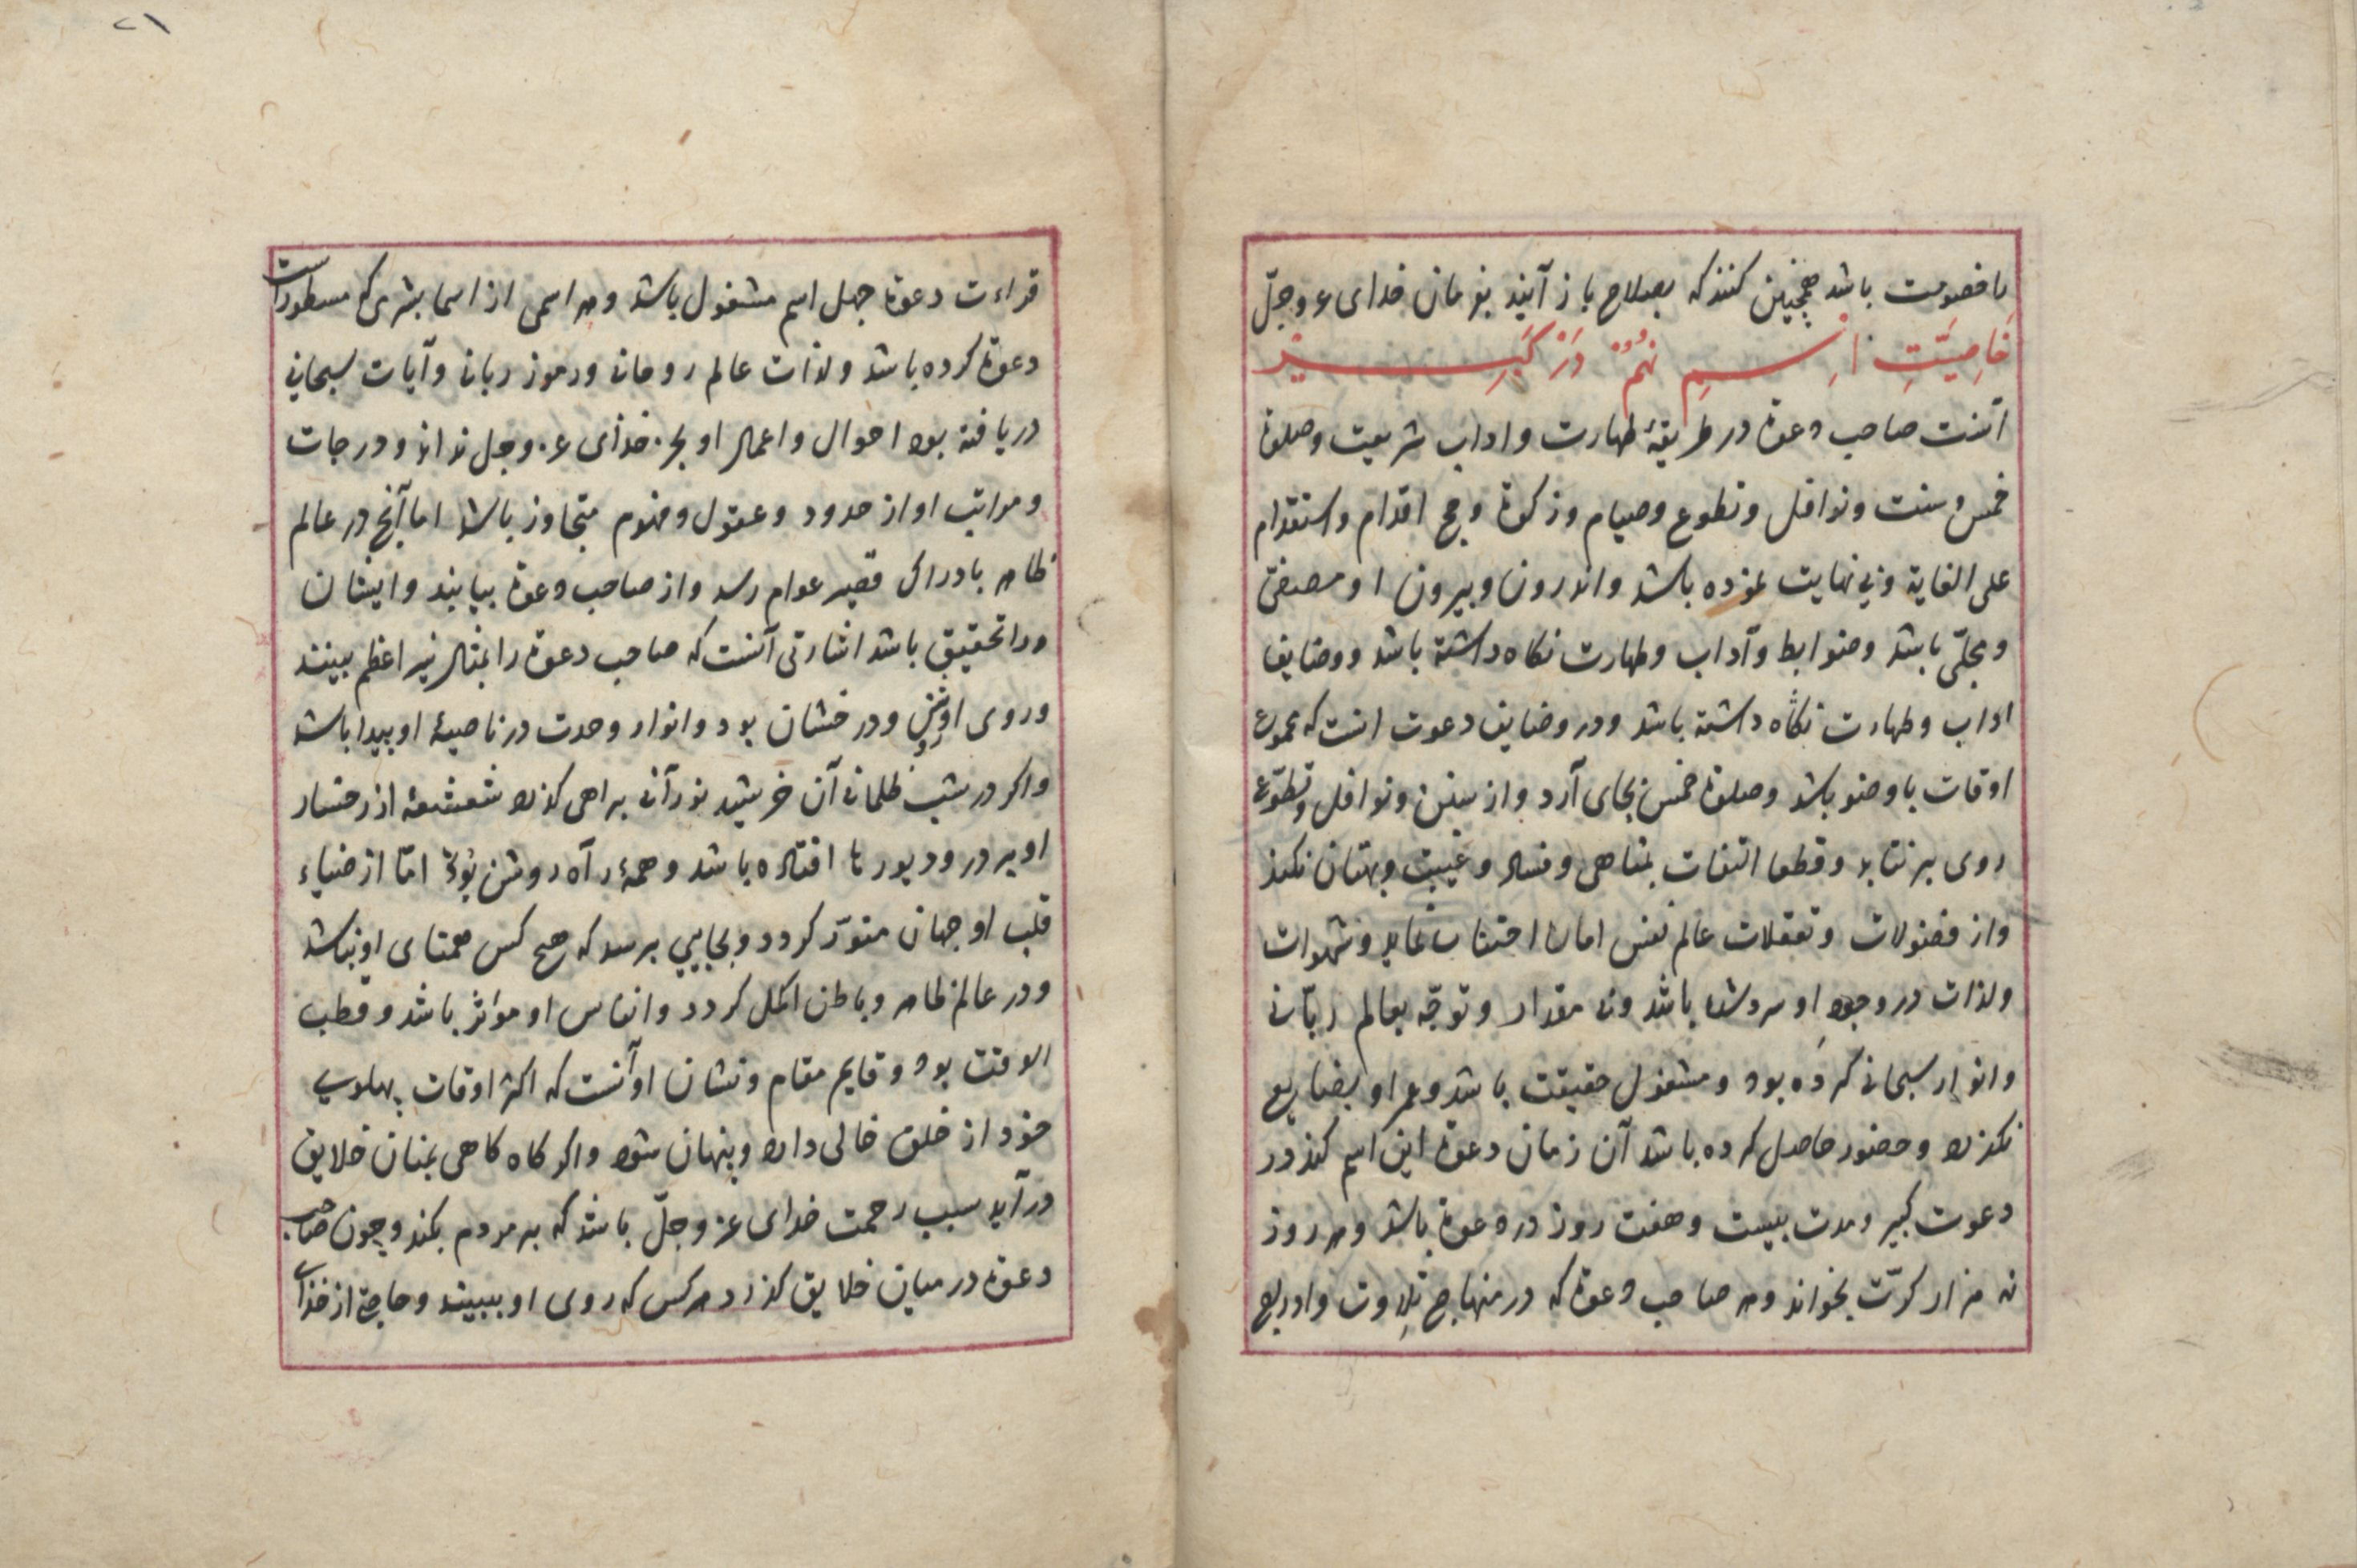 با خصومت باشد همچنین کنند که بصلاح باز آیند بفرمان خدای عز وجلّ
خَاصِیَّتِ اِسمِ نُهُمْ دَرْ کَبِیرْ
آنست صاحب دعوة در طریقهٔ طهارت واداب شریعت وصلوة
خمس وسنت ونوافل وتطوع وصیام وزکوة وحج اقدام واستقدام
علی الغایة وبی نهایت نموده باشد واندرون وبیرون او مصفی
ومجلّی باشد وضوابط وآداب وطهارت نکاه داشته باشد ووضایف
اداب وطهارت نکاه داشته باشد ودر وضایف دعوت انست که عموع
اوقات باوضو باشد وصلوة خمس بجای آرد واز سنن ونوافل وتطوّع
روی برنتابد وقطعا التفات بمناهی وفساد وغیبت وبهتان نکند
واز فضولات وتعقلات عالم نفس اماره اجتناب نماید وشهوات
ولذات در وجود او سرد شده باشد ونه مقدار وتوجّه بعالم ربّانی
وانوار سبحانی کرده بود ومشغول حقیقت باشد وعمر او بضایع
نکذرد وحضور حاصل کرده باشد آن زمان دعوة این اسم کند در
دعوت کبیر ومدت بیست وهفت روز در دعوة باشد وهر روز
نه هزار کرّت بخواند وهر صاحب دعوة که در منهاج تلاوت واوریع
٢١
قراءت دعوة جهل اسم مشغول باشد وهر اسمی از اسما بشری که مسطورست
دعوة کرده باشد ولذات عالم روحانی ورموز ربانی وآیات سبحانی
دریافته بود احوال واعمال او بجز خذای عز وجل نداند ودرجات
ومراتب او از حدود وعقول وفهوم متجاوز باشد اما آنچ در عالم
ظاهر بادراک قصیر عوام رسد واز صاحب دعوة بیابند وایشان
ورا تحقیق باشد اشارتی آنست که صاحب دعوة را بمثال نیر اعظم ببینند
وروی او روشن ودرخشان بود وانوار وحدت در ناصیهٔ او پیدا باشد
واکر در شب ظلمانی آن خرشید نورآنی براهی کذرد شعشعهٔ از رخسار
او بر در ودیورها افتاده باشد وهمهٔ رآه روشن بُوَدْ امّا از ضیاء
قلب او جهان منوّر کردد وبجایی برسد که هیچ کس همتای او نباشد
ودر عالم ظاهر وباطن اکمل کردد وانفاس او مواثر باشد وقطب
الوقت بود وقایم مقام ونشان او آنست که اکثر اوقات پهلوی
خود از خلق خالی دارد وپنهان شود واکر کاه کاهی بمیان خلایق
درآید سبب رحمت خدای عز وجلّ باشد که بر مردم بکند وچون صاحب
دعوة در میان خلایق کذرد هر کس که روی او ببیند وحاجة از خذای